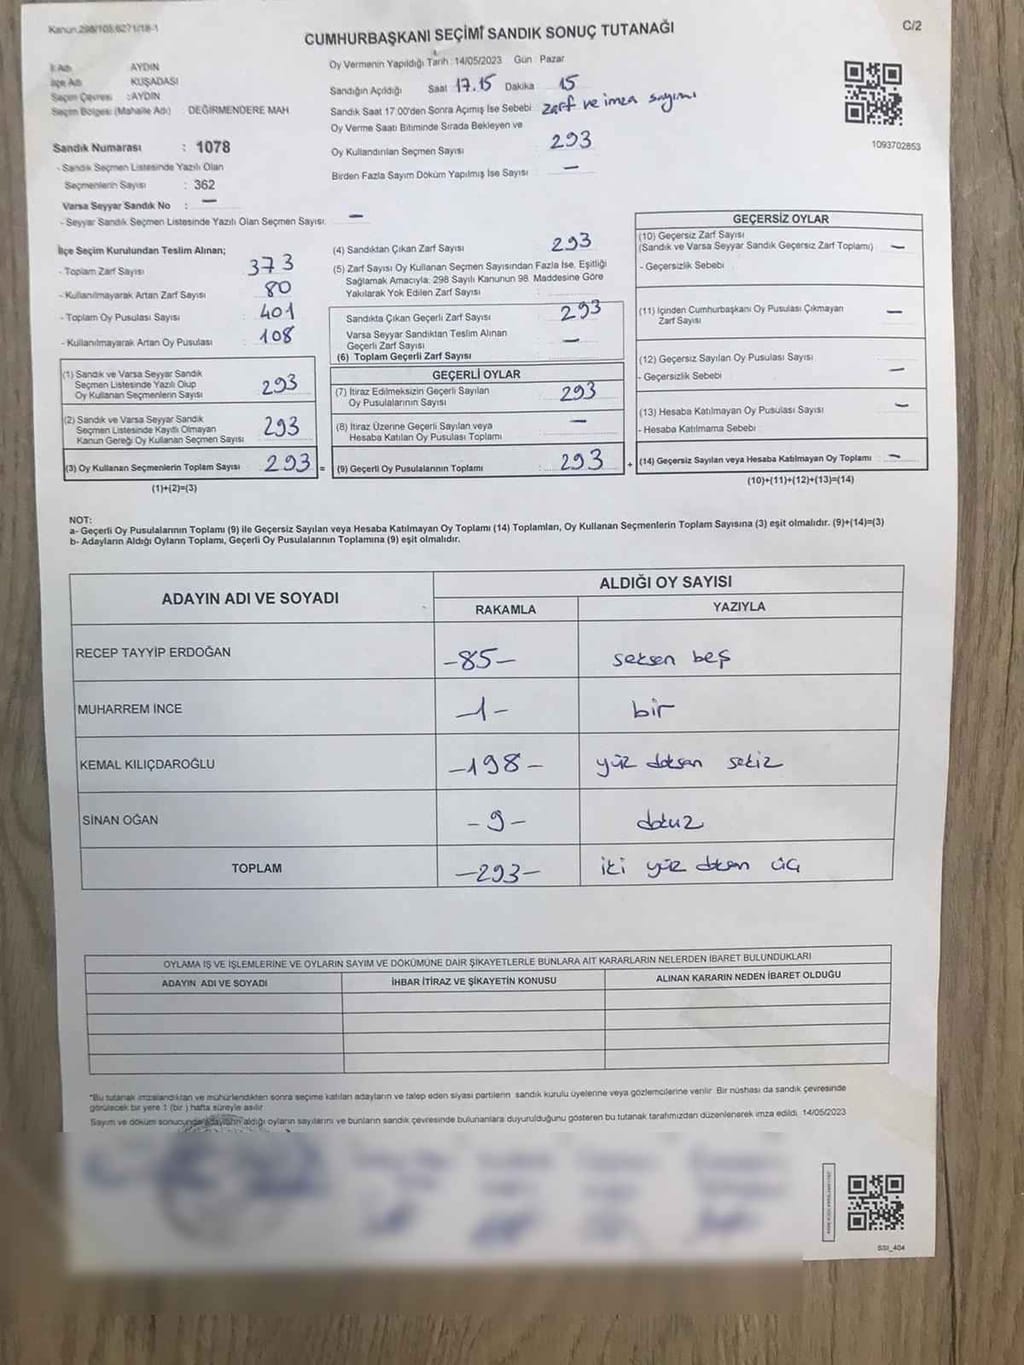 Kanun.298/105;6271/18-1
C/2
CUMHURBAŞKANI SEÇİMİ SANDIK SONUÇ TUTANAĞI
İl Adı AYDIN
İlçe Adı KUŞADASI
Seçim Çevresi : AYDIN
Seçim Bölgesi (Mahalle Adı) DEĞİRMENDERE MAH
Sandık Numarası : 1078
- Sandık Seçmen Listesinde Yazılı Olan
Seçmenlerin Sayısı : 362
Varsa Seyyar Sandık No : —
- Seyyar Sandık Seçmen Listesinde Yazılı Olan Seçmen Sayısı: —
Oy Vermenin Yapıldığı Tarih : 14/05/2023 Gün : Pazar
Sandığın Açıldığı Saat 17.15 Dakika 15
Sandık Saat 17:00'den Sonra Açımış İse Sebebi zarf ve imza sayımı
Oy Verme Saati Bitiminde Sırada Bekleyen ve
Oy Kullandırılan Seçmen Sayısı 293
Birden Fazla Sayım Döküm Yapılmış İse Sayısı —
1093702853
İlçe Seçim Kurulundan Teslim Alınan;
- Toplam Zarf Sayısı 373
- Kullanılmayarak Artan Zarf Sayısı 80
- Toplam Oy Pusulası Sayısı 401
- Kullanılmayarak Artan Oy Pusulası 108
(1) Sandık ve Varsa Seyyar Sandık
Seçmen Listesinde Yazılı Olup
Oy Kullanan Seçmenlerin Sayısı 293
(2) Sandık ve Varsa Seyyar Sandık
Seçmen Listesinde Kayıtlı Olmayan
Kanun Gereği Oy Kullanan Seçmen Sayısı 293
(3) Oy Kullanan Seçmenlerin Toplam Sayısı 293 =
(1)+(2)=(3)
(4) Sandıktan Çıkan Zarf Sayısı 293
(5) Zarf Sayısı Oy Kullanan Seçmen Sayısından Fazla İse, Eşitliği
Sağlamak Amacıyla; 298 Sayılı Kanunun 98. Maddesine Göre
Yakılarak Yok Edilen Zarf Sayısı
Sandıkta Çıkan Geçerli Zarf Sayısı 293
Varsa Seyyar Sandıktan Teslim Alınan
Geçerli Zarf Sayısı —
(6) Toplam Geçerli Zarf Sayısı
GEÇERLİ OYLAR
(7) İtiraz Edilmeksizin Geçerli Sayılan
Oy Pusulalarının Sayısı 293
(8) İtiraz Üzerine Geçerli Sayılan veya
Hesaba Katılan Oy Pusulası Toplamı —
(9) Geçerli Oy Pusulalarının Toplamı : 293 +
GEÇERSİZ OYLAR
(10) Geçersiz Zarf Sayısı
(Sandık ve Varsa Seyyar Sandık Geçersiz Zarf Toplamı) —
- Geçersizlik Sebebi
(11) İçinden Cumhurbaşkanı Oy Pusulası Çıkmayan
Zarf Sayısı —
(12) Geçersiz Sayılan Oy Pusulası Sayısı —
- Geçersizlik Sebebi
(13) Hesaba Katılmayan Oy Pusulası Sayısı —
- Hesaba Katılmama Sebebi
(14) Geçersiz Sayılan veya Hesaba Katılmayan Oy Toplamı —
(10)+(11)+(12)+(13)=(14)
NOT:
a- Geçerli Oy Pusulalarının Toplamı (9) ile Geçersiz Sayılan veya Hesaba Katılmayan Oy Toplamı (14) Toplamları, Oy Kullanan Seçmenlerin Toplam Sayısına (3) eşit olmalıdır. (9)+(14)=(3)
b- Adayların Aldığı Oyların Toplamı, Geçerli Oy Pusulalarının Toplamına (9) eşit olmalıdır.
ADAYIN ADI VE SOYADI ALDIĞI OY SAYISI
RAKAMLA YAZIYLA
RECEP TAYYİP ERDOĞAN -85- seksen beş
MUHARREM İNCE -1- bir
KEMAL KILIÇDAROĞLU -198- yüz doksan sekiz
SİNAN OĞAN -9- dokuz
TOPLAM -293- iki yüz doksan üç
OYLAMA İŞ VE İŞLEMLERİNE VE OYLARIN SAYIM VE DÖKÜMÜNE DAİR ŞİKAYETLERLE BUNLARA AİT KARARLARIN NELERDEN İBARET BULUNDUKLARI
ADAYIN ADI VE SOYADI İHBAR İTİRAZ VE ŞİKAYETİN KONUSU ALINAN KARARIN NEDEN İBARET OLDUĞU
*Bu tutanak imzalandıktan ve mühürlendikten sonra seçime katılan adayların ve talep eden siyasi partilerin sandık kurulu üyelerine veya gözlemcilerine verilir. Bir nüshası da sandık çevresinde
görülecek bir yere 1 (bir) hafta süreyle asılır
Sayım ve döküm sonucunda adayların aldığı oyların sayılarını ve bunların sandık çevresinde bulunanlara duyurulduğunu gösteren bu tutanak tarafımızdan düzenlenerek imza edildi. 14/05/2023
SSI_404